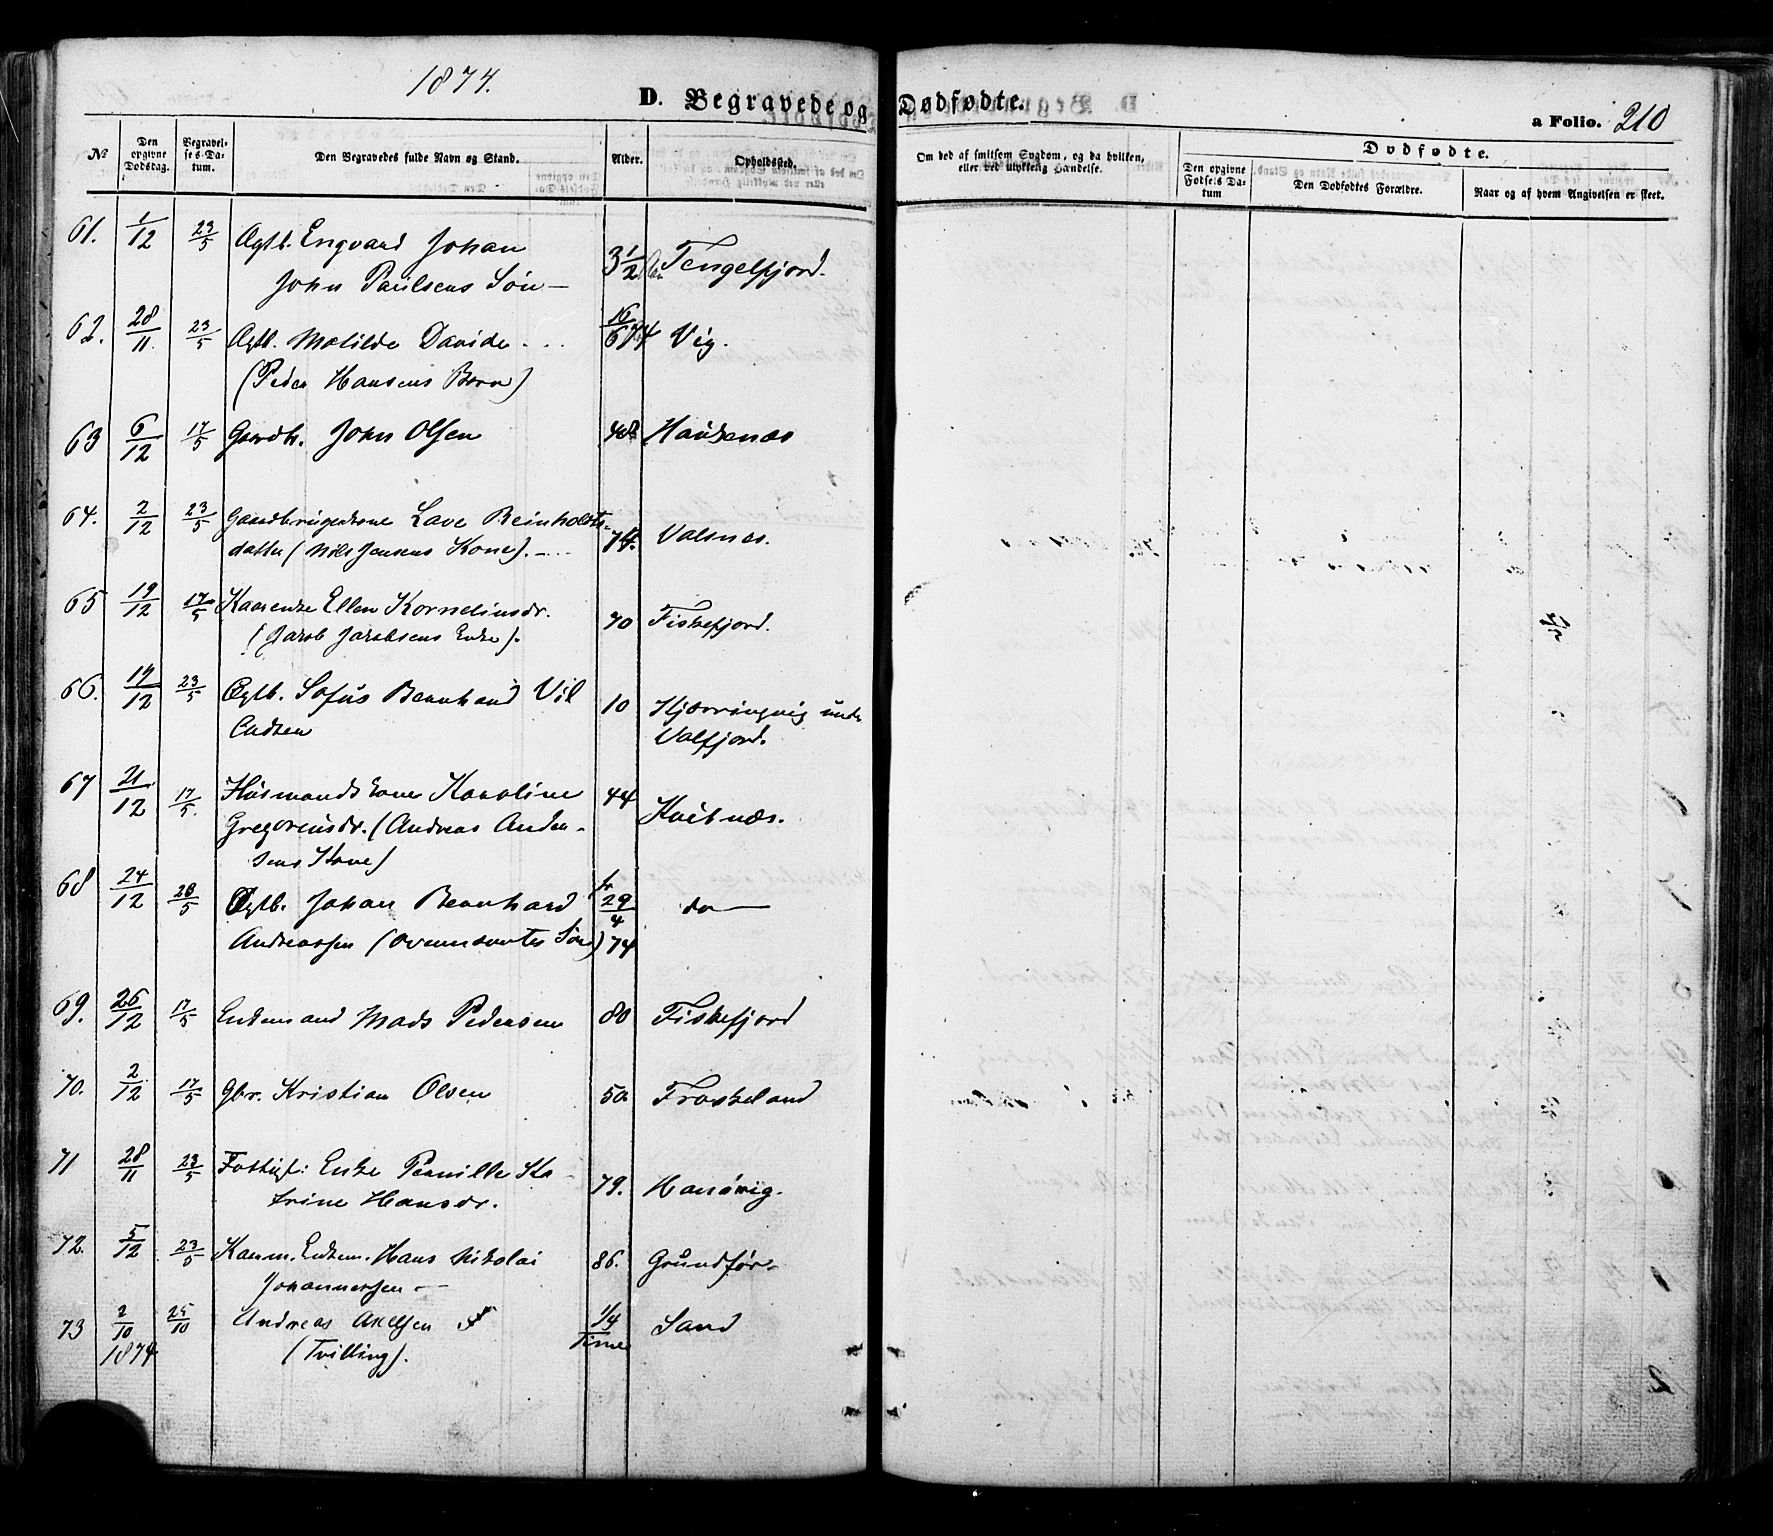 1874.
D. Begravede og Dødfødte.
a Folio. 210
№
Den opgivne Dødsdag.
Begravelses-Datum.
Den Begravedes fulde Navn og Stand.
Alder.
Opholdssted.
Om død af smitsom Sygdom, og da hvilken, eller ved ulykkelig Hændelse.
Dødfødte.
Den opgivne Fødsels Datum
Den Dødfødtes Forældre.
Naar og af hvem Angivelsen er skeet.
61. 1/12 23/5 Ægtb. Engvard Johan 3 1/2 Tengelfjord.
John Paulsens Søn —
62. 28/11 23/5 Ægtb. Matilde Davide . . . 16/6 74 Vig.
(Peder Hansens Barn)
63 6/12 17/5 Gaardbr. John Olsen 48 Hauknæs
64. 2/12 23/5 Gaardbrugerkone Lave Reinholdts-
datter (Nils Jensens Kone). — 74. Valsnes.
65 19/12 17/5 Kaarenke Ellen Kornelius dr. 70 Fiskefjord.
(Jakob Jakobsens Enke).
66. 19/12 23/5 Ægtb. Sofus Bernhard Vil 10 Kjærringvig under
Valfjord.
67 21/12 17/5. Husmandskone Karoline 44 Kvitnæs.
Gregoriusdr. (Andreas Ander-
sens Kone)
68 24/12 23/5 Ægtb. Johan Bernhard fr 29/4 74 do —
Andreassen (ovennævntes Søn)
69. 26/12 17/5 Enkemand Mads Pedersen 80 Fiskefjord
70. 2/12 17/5 Gbr. Kristian Olsen 50. Froskeland
71 28/11 23/5 Fattigl: Enke Pernille Ka
trine Hansdr. 79. Hanøvig.
72. 5/12 23/5 Kaarm. Enkem. Hans Nikolai 86. Grundfør
Johannessen —
73 2/10 1874 25/10 Andreas Axelsen 1/4 Time Sand
(Tvilling).